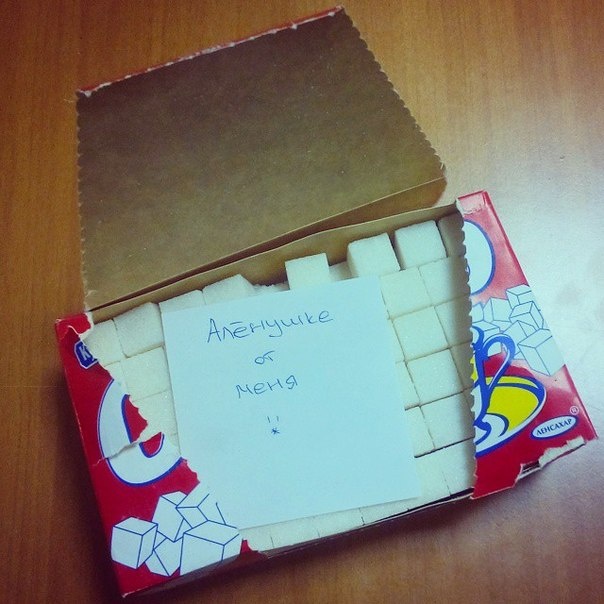 Алёнушке
от
меня
!!
*
ЛЕНСАХАР®